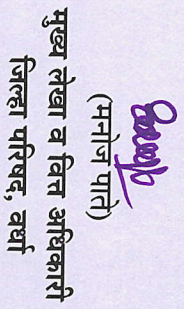 (मनोज पाते)
मुख्य लेखा व वित्त अधिकारी
जिल्हा परिषद, वर्धा